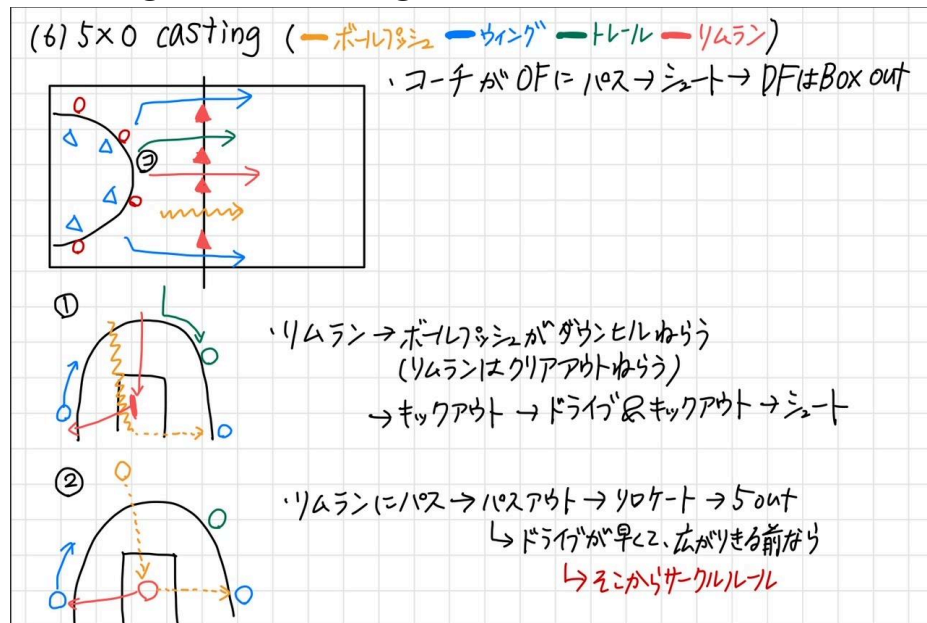 (6) 5×0 casting (ーボールプッシュ ーウィング ートレール ーリムラン)
・コーチがOFにパス→シュート→DFはBox out
①
・リムラン→ボールプッシュがダウンヒルねらう
(リムランはクリアアウトねらう)
→キックアウト→ドライブ&キックアウト→シュート
②
・リムランにパス→パスアウト→リロケート→5out
↳ドライブが早くて、広がりきる前なら
↳そこからサークルルール